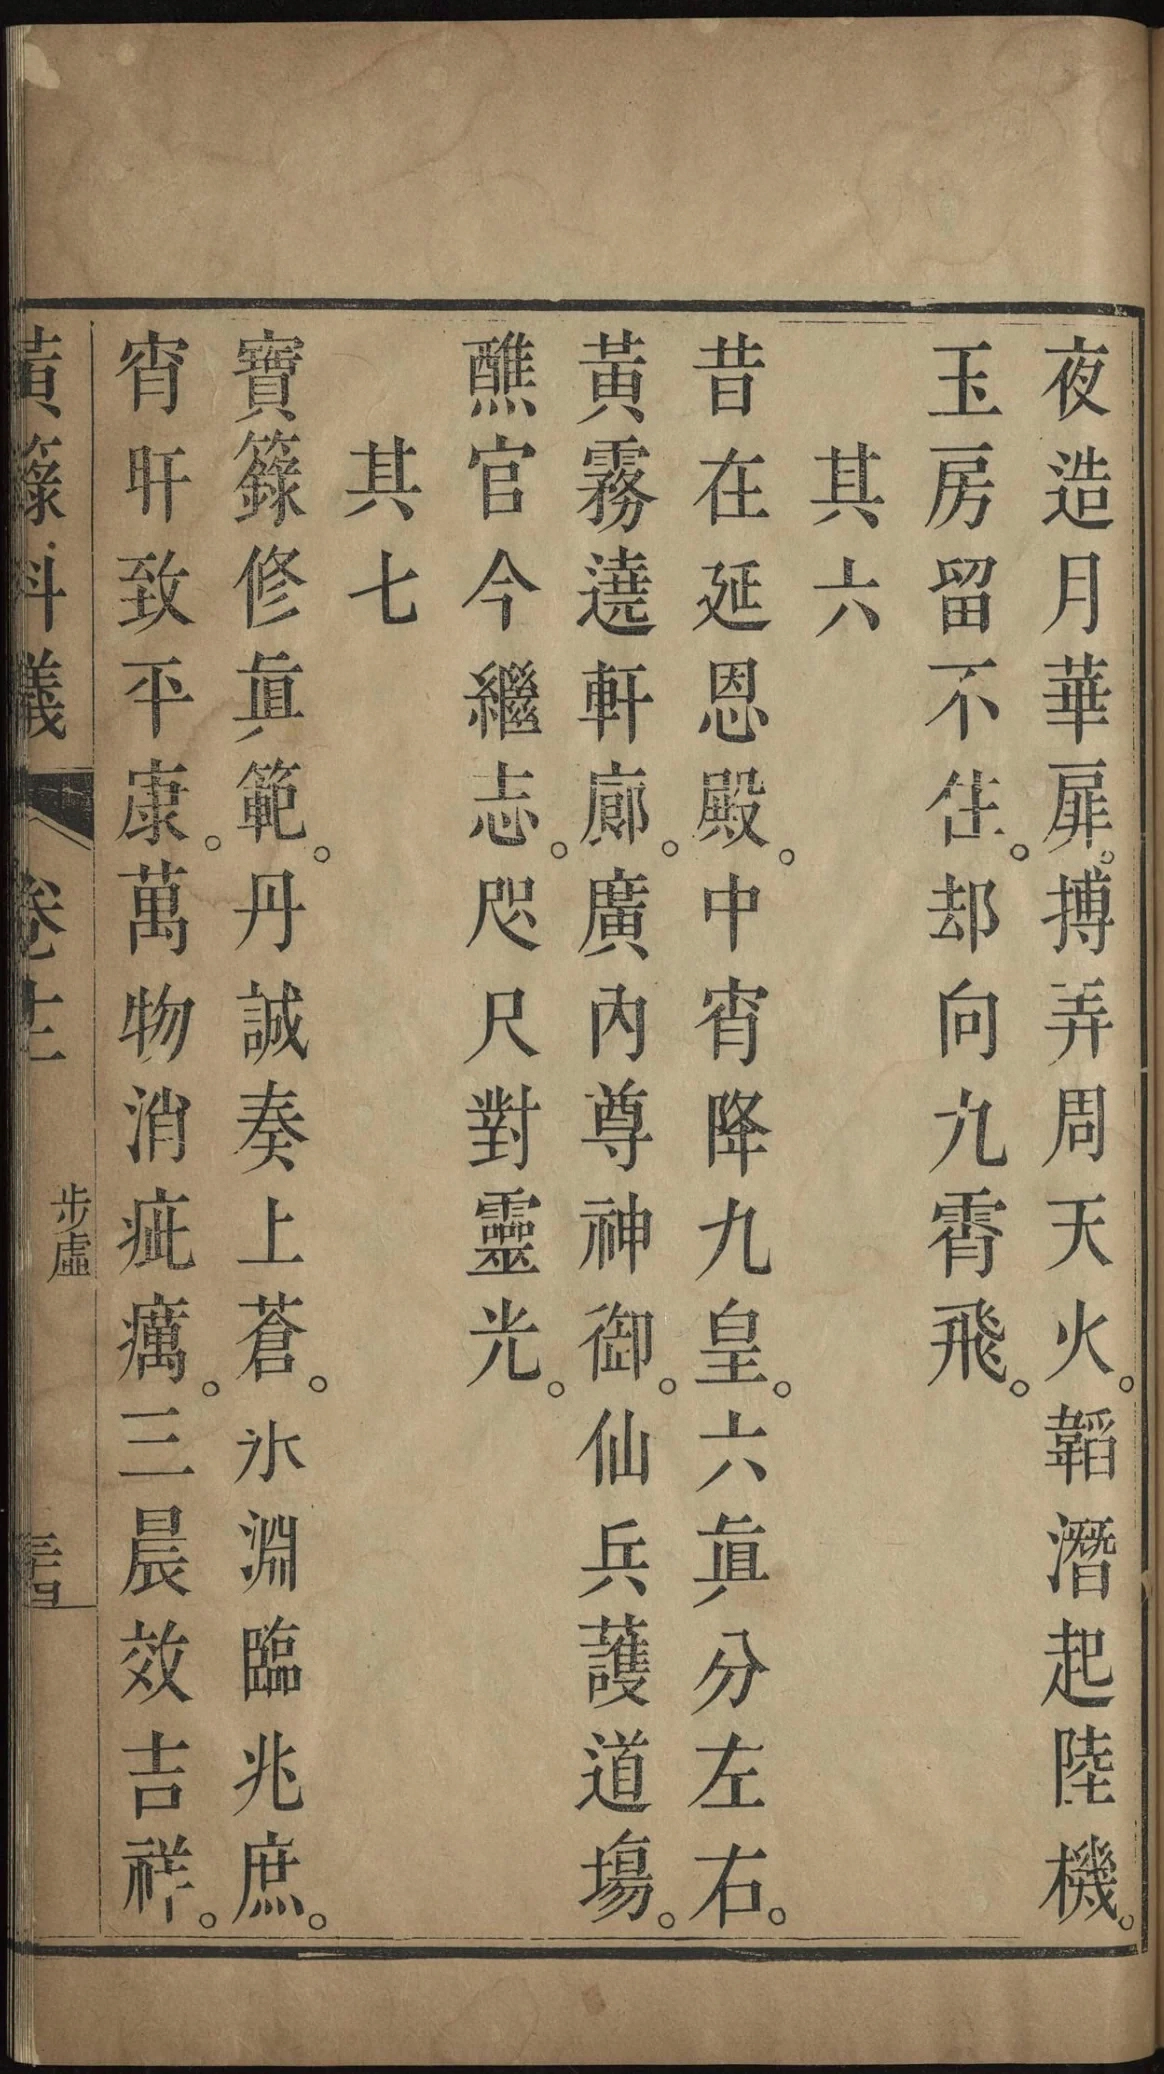 夜造月華扉。搏弄周天火。韜潛起陸機。
玉房留不住。却向九霄飛。
其六
昔在延恩殿。中宵降九皇。六眞分左右。
黃霧遶軒廊。廣內尊神御。仙兵護道場。
醮官今繼志。咫尺對靈光。
其七
寶籙修眞範。丹誠奏上蒼。氷淵臨兆庶。
宵旰致平康。萬物消疵癘。三晨效吉祥。
黃籙科儀 卷十二 步虛 三十四